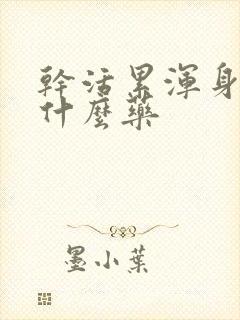 幹活累渾身
什麼藥
墨小葉